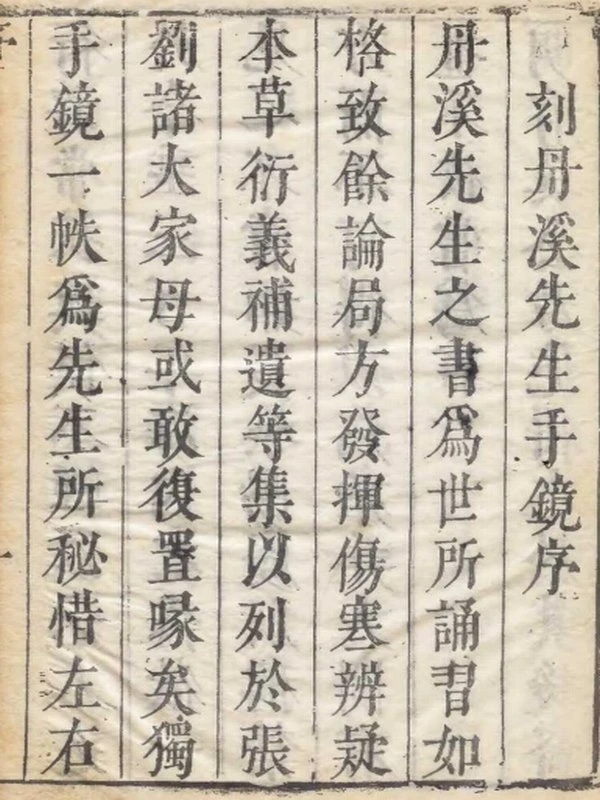 刻丹溪先生手鏡序
丹溪先生之書爲世所誦習如
格致餘論局方發揮傷寒辨疑
本草衍義補遺等集以列於張
劉諸大家毋或敢復置喙矣獨
手鏡一帙爲先生所秘惜左右